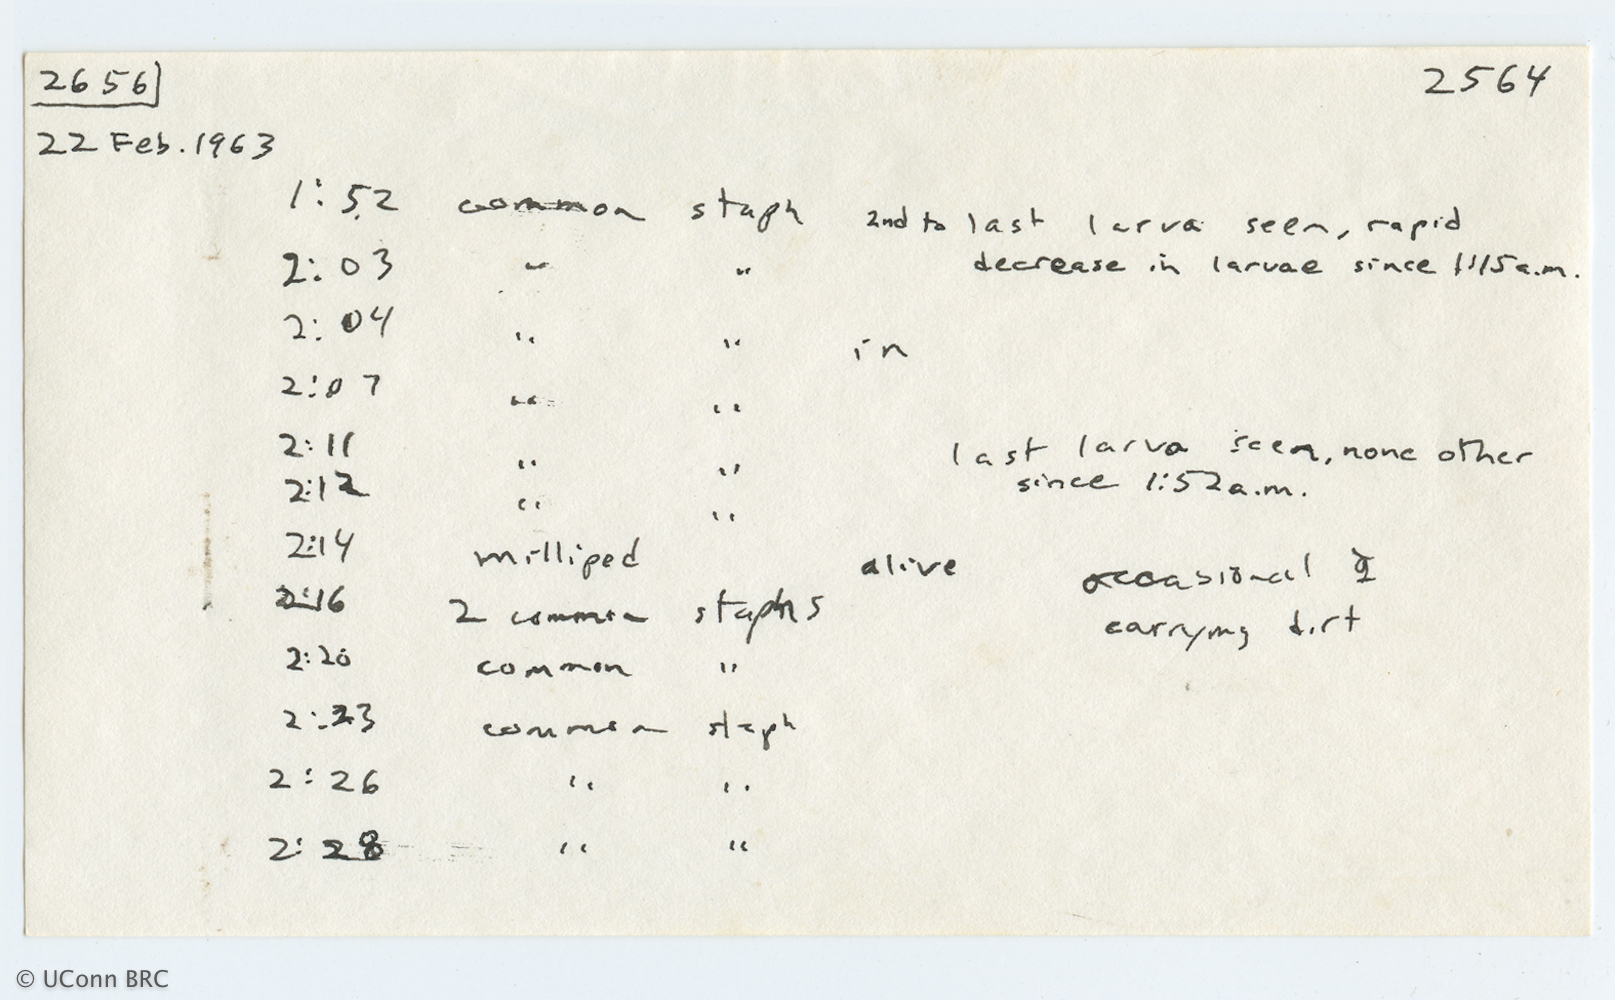 2656 2564
22 Feb. 1963
1:52 common staph 2nd to last larva seen, rapid
2:03 " " decrease in larvae since 1:15 a.m.
2:04 " " in
2:07 " "
2:11 " " last larva seen, none other
2:12 " " since 1:52 a.m.
2:14 milliped alive occasional
2:16 2 common staphs carrying dirt
2:20 common "
2:23 common staph
2:26 " "
2:28 " "
© UConn BRC